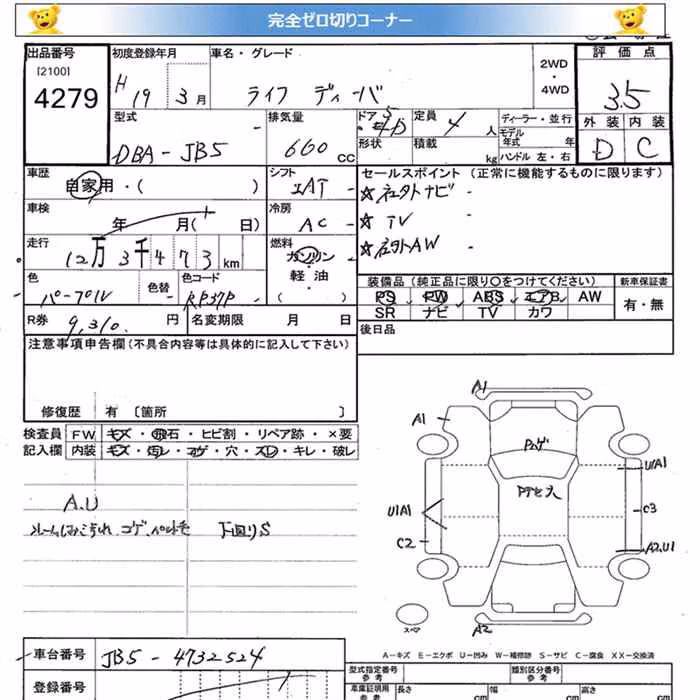 完全ゼロ切りコーナー
出品番号 初度登録年月 車名・グレード 2WD・4WD 評価点
[2100]
4279 H19 3月 ライフ ディーバ 3.5
型式 排気量 ドア 定員 ディーラー・並行 外装 内装
DBA-JB5 660cc 5 4人 モデル年式 年 D C
形状 積載 kg ハンドル 左・右
車歴 シフト セールスポイント (正常に機能するものに限ります)
自家用・( ) IAT ☆社外ナビ
車検 冷房 ☆TV
年 月( 日) AC ☆社外AW
走行 燃料
12万3千473km ガソリン
軽・油
( )
色 色替 色コード 装備品 (純正品に限り○をつけてください) 新車保証書
パープル RP37P PS PW ABS エアB AW 有・無
SR ナビ TV カワ
R券 9,310.円 名変期限 月 日 後日品
注意事項申告欄 (不具合内容等は具体的に記入して下さい)
修復歴 有 [箇所 ]
検査員 FW キズ・飛石・ヒビ割・リペア跡・×要
記入欄 内装 キズ・汚レ・コゲ・穴・スレ・キレ・破レ
A.U
コゲ 下回りS
A1
A1
U1A1
U1A1
C3
C2
A2.U1
スペア
A2
A-キズ E-エクボ U-凹み W-補修跡 S-サビ C-腐食 XX-交換済
車台番号 JB5-4732524
型式指定番号 類別区分番号
登録番号
車庫証明用参考 長さ cm 幅 cm 高さ cm